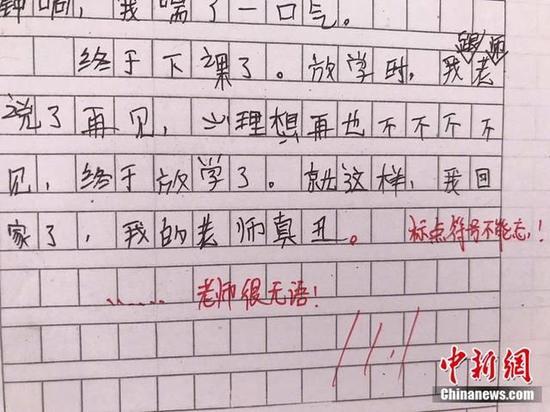 钟响，我喘了一口气。
跟 师
终于下课了。放学时，我老
说了再见，心理想再也不不不不
见，终于放学了。就这样，我回
家了，我的老师真丑。 标点符号不能忘！
…… 老师很无语！
中新网
Chinanews.com